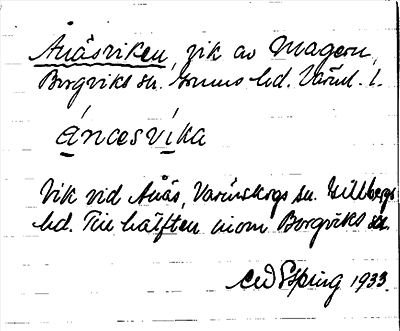 Anäsviken, vik av Magern,
Borgviks sn. Grums hd. Värml. l.
áncesvíka
Vik vid Anäs, Värmskogs sn. Gillbergs
hd. Till hälften inom Borgviks sn.
1933.